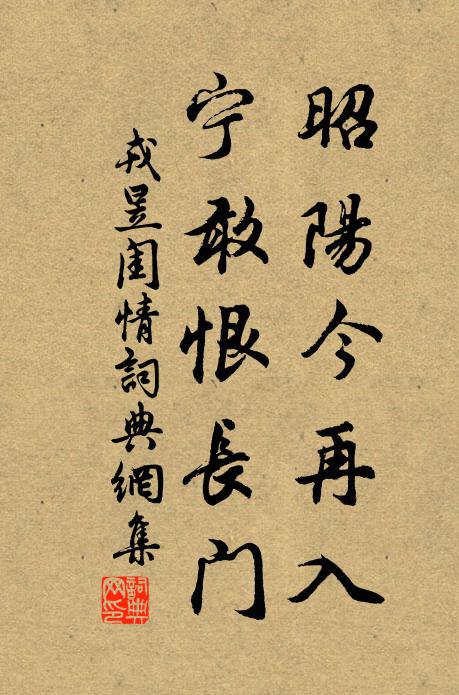 昭陽今再入
宁敢恨長门
戎昱闺情詞典網集
詞典网印